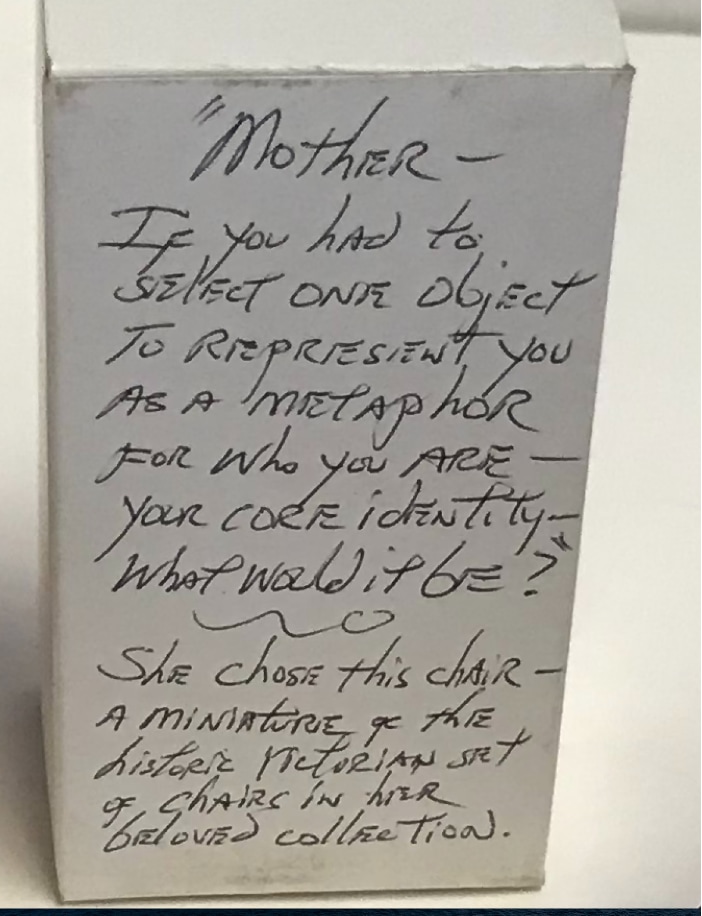 "Mother —
If you had to
select one object
to represent you
as a metaphor
for who you are —
your core identity —
what would it be?"
She chose this chair —
a miniature of the
historic Victorian set
of chairs in her
beloved collection.